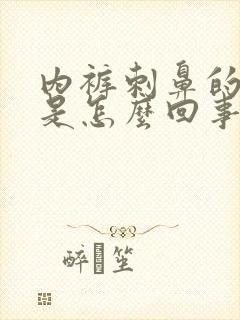 内裤刺鼻的
是怎麼回事
醉 笙